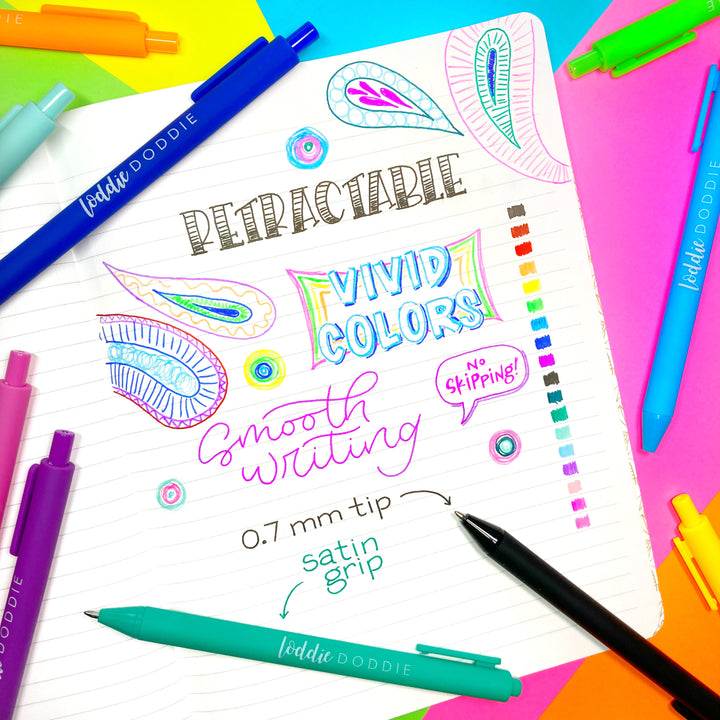 DODDIE
loddie DODDIE
RETRACTABLE
VIVID
COLORS
No
SKipping!
Smooth
writing
0.7 mm tip
satin
grip
loddie DODDIE
loddie DODDIE
DODDIE